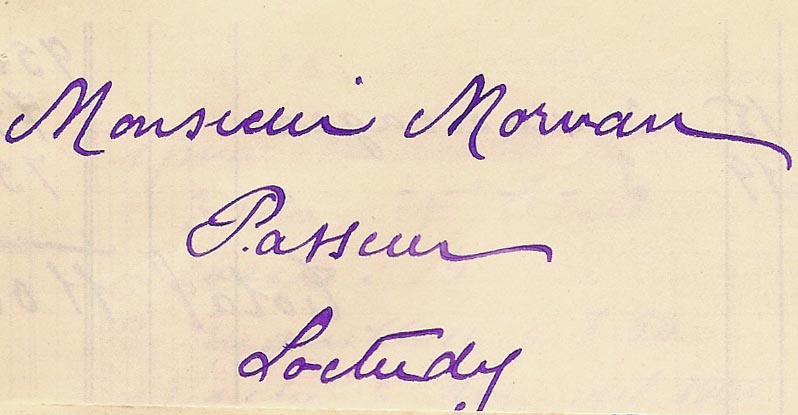 Monsieur Morvan
Passeur
Loctudy